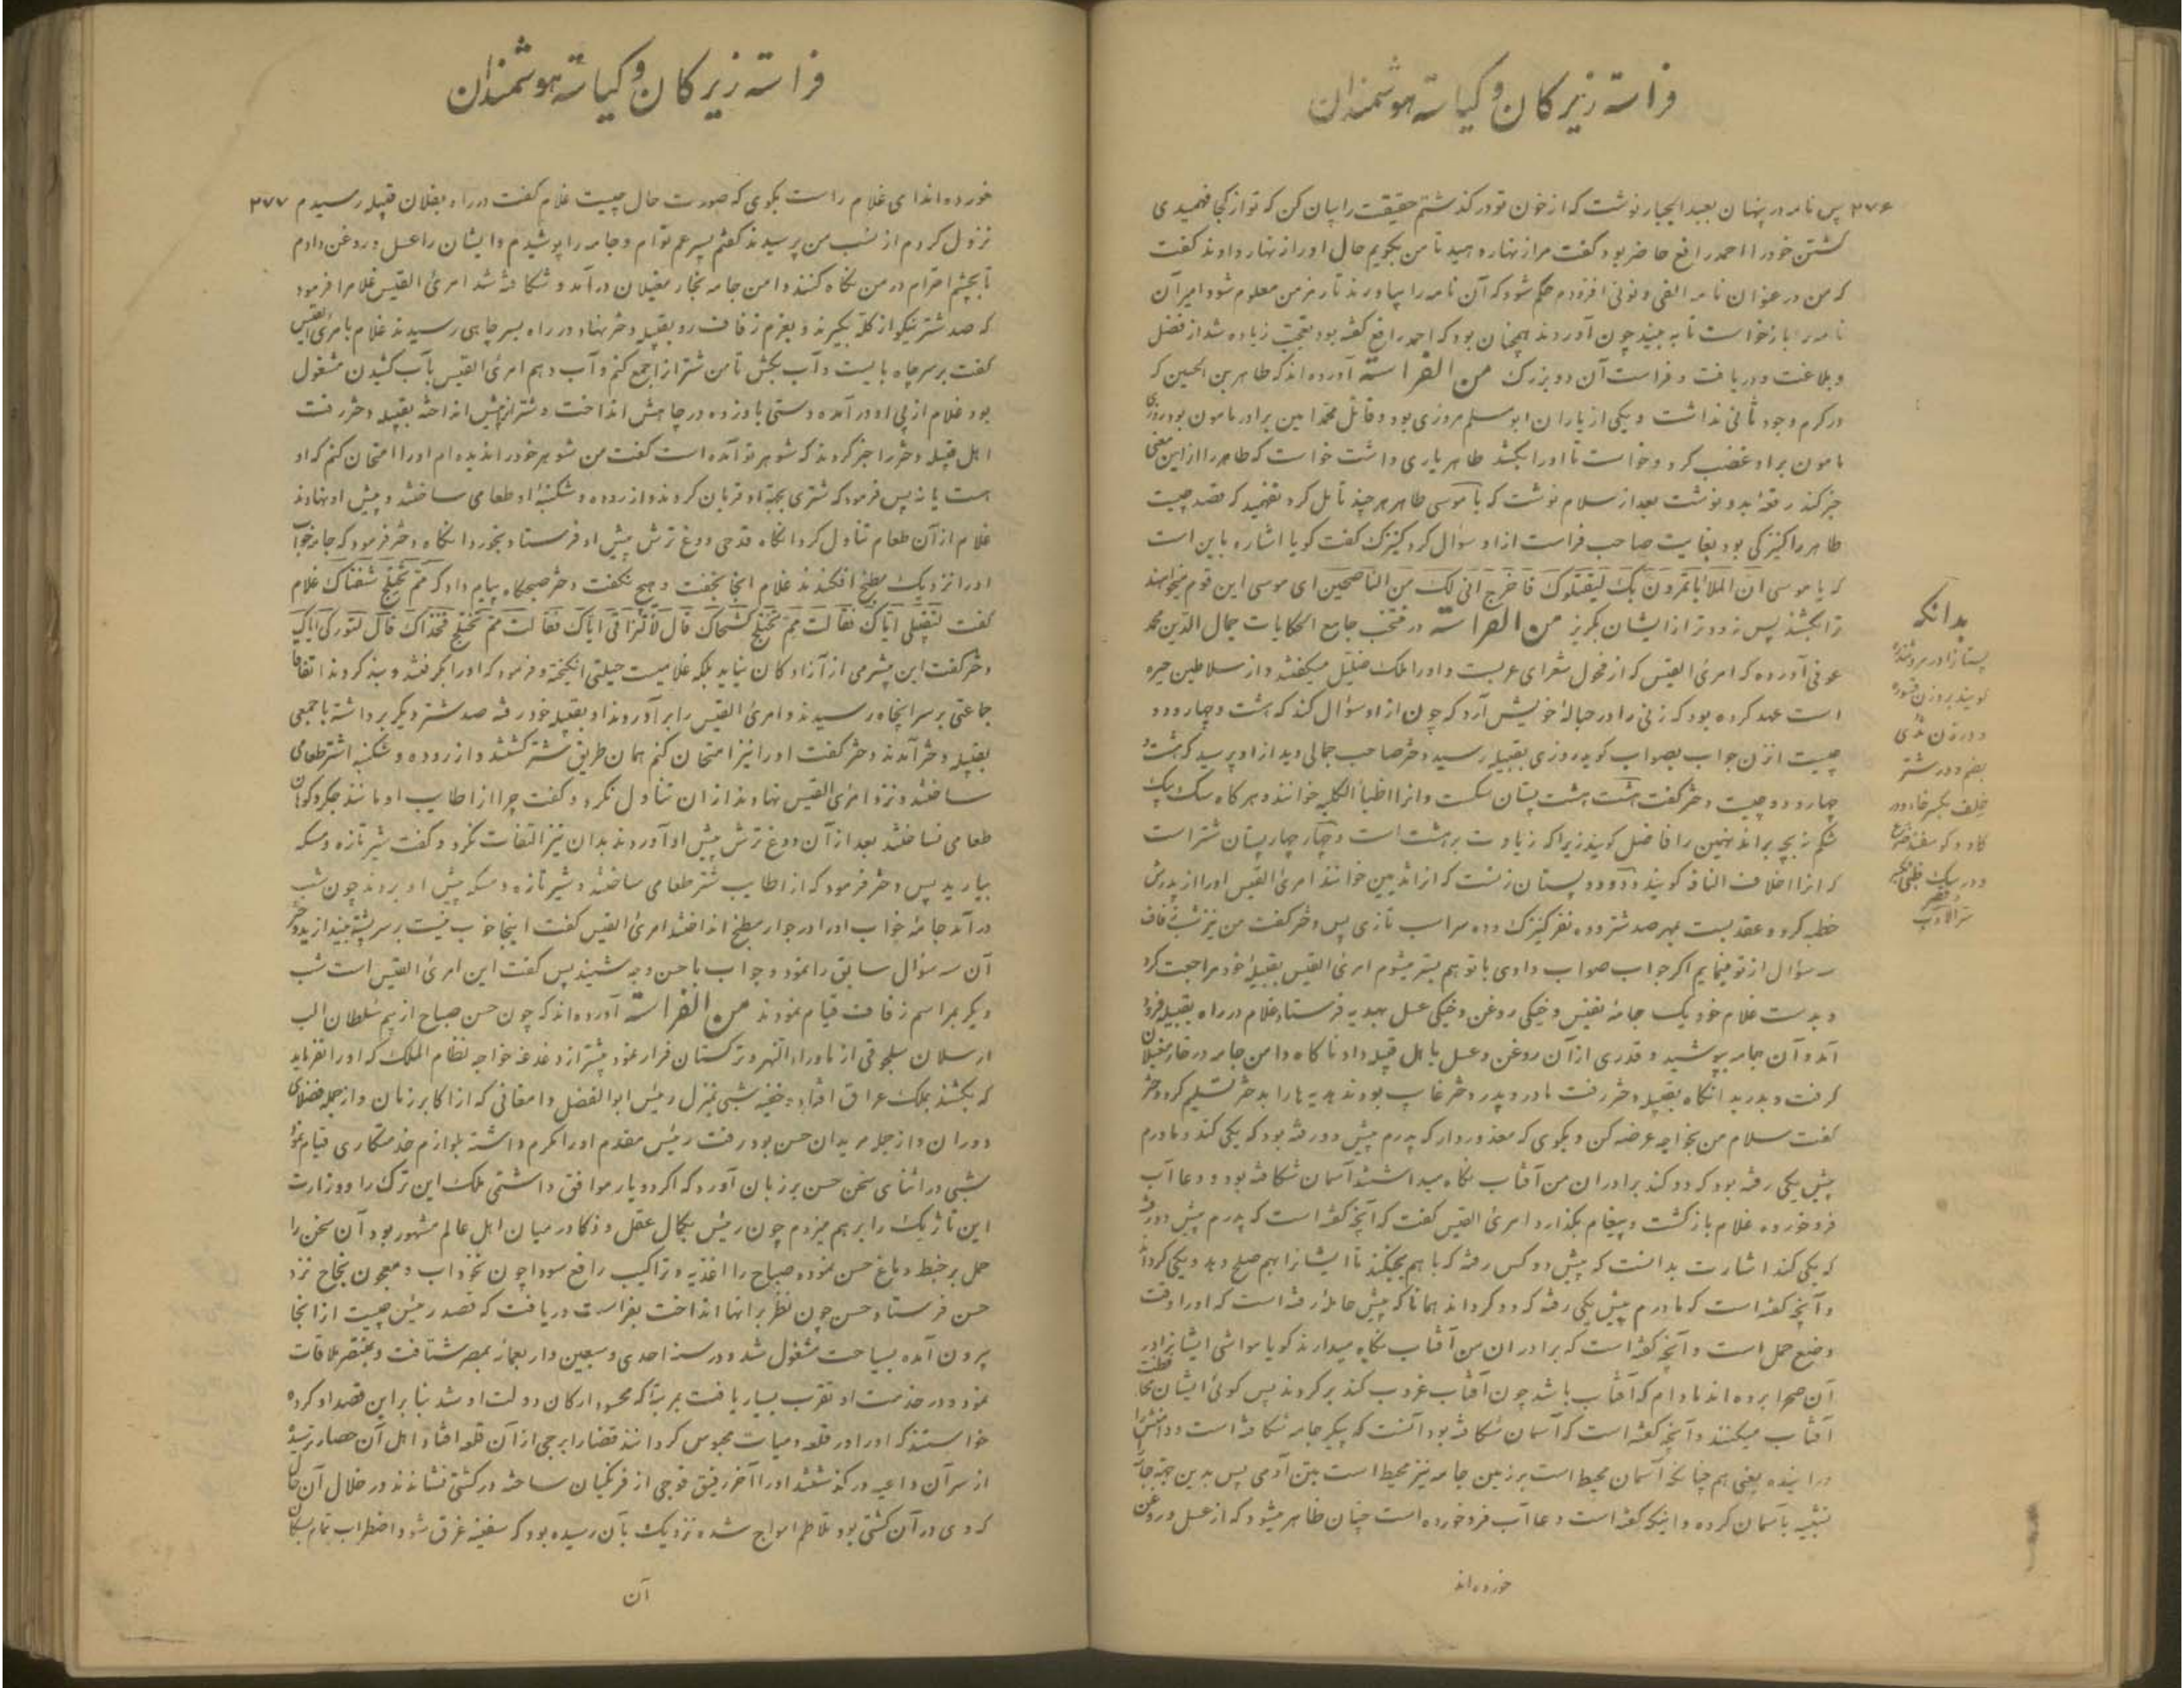 فراسته زیرکان و کیاسته هوشمندان
۲۷۶ پس نامه در پنهان بعبد الجبار نوشت که از خون تو در گذشتم حقیقت را بیان کن که تو از کجا فهمیدی
کشتن خود را احمد رافع حاضر بود گفت مرا زنهار دهید تا من بگویم حال او را زنهار دادند گفت
که من در عنوان نامه الفی و نونی افزودم حکم شود که آن نامه را بیاورند تا رمز من معلوم شود امیر آن
نامه را بازخواست تا به بیند چون آوردند همچنان بود که احمد رافع گفته بود تعجب زیاده شد از فضل
و بلاغت و دریافت و فراست آن دو بزرگ من الفراسة آورده‌اند که طاهر بن الحسین که
در کرم و جود ثانی نداشت و یکی از یاران ابو مسلم مروزی بود و قاتل محمد امین برادر مامون بود روزی
مامون بر او غضب کرد و خواست تا او را بکشد طاهر یاری داشت خواست که طاهر را از این معنی
خبر کند رقعه بدو نوشت بعد از سلام نوشت که یا موسی طاهر هر چند تأمل کرد نفهمید که قصد چیست
طاهر را کنیزکی بود بغایت صاحب فراست از او سؤال کرد کنیزک گفت گویا اشاره باین است
که یا موسی ان الملأ یأتمرون بک لیقتلوک فاخرج انی لک من الناصحین ای موسی این قوم میخواهند
ترا بکشند پس زودتر از ایشان بگریز من الفراسة در منتخب جامع الحکایات جمال الدین محمد
عوفی آورده که امرئ القیس که از فحول شعرای عربست و او را ملک ضلیل میگفتند و از سلاطین حیره
است عهد کرده بود که زنی را در حبالهٔ خویش آرد که چون از او سؤال کند که هشت و چهار و دو
چیست از زن جواب بصواب گوید روزی بقبیله رسید دختر صاحب جمالی دید از او پرسید که هشت و
چهار و دو چیست دختر گفت هشت هشت پستان سگست و انرا اطباء الکلبه خوانند و هر گاه سگ بیک
شکم نه بچه براند نهمین را فاضل گویند زیرا که زیادت بر هشت است و چهار چهار پستان شتر است
که انرا اخلاف الناقه گویند و دو دو پستان زنست که انرا ثدیین خوانند امرئ القیس او را از پدرش
خطبه کرد و عقد بست بمهر صد شتر و ده نفر کنیزک و ده سر اسب تازی پس دختر گفت من نیز شب زفاف
سه سؤال از تو مینمایم اگر جواب صواب دادی با تو هم بستر میشوم امرئ القیس بقبیلهٔ خود مراجعت کرد
و بدست غلام خود یک جامهٔ نفیس و خیکی روغن و خیکی عسل بهدیه فرستاد غلام در راه بقبیله فرود
آمد و آن جامه بپوشید و قدری از آن روغن و عسل باهل قبیله داد ناگاه دامن جامه در خار مغیلان
گرفت و بدرید انگاه بقبیله دختر رفت مادر و پدر دختر غایب بودند هدیه ها را بدختر تسلیم کرد دختر
گفت سلام من بخواجه عرضه کن و بگوی که معذور دار که پدرم پیش دو رفته بود که یکی کند و مادرم
پیش یکی رفته بود که دو کند برادران من آفتاب نگاه میداشتند آسمان شکافته بود و وعا آب
فرو خورده غلام بازگشت و پیغام بگذارد امرئ القیس گفت که آنچه گفته است که پدرم پیش دو رفته
که یکی کند اشارت بدانست که پیش دو کس رفته که با هم بجنگند تا ایشانرا بهم صلح دهد و یکی کرداند
و آنچه گفته است که مادرم پیش یکی رفته که دو کرداند همانا که پیش حامله رفته است که او را وقت
وضع حمل است و آنچه گفته است که برادران من آفتاب نگاه میدارند گویا مواشی ایشانرا در
آن صحرا برده‌اند مادام که آفتاب باشد چون آفتاب غروب کند بر گردند پس گوئی ایشان محافظت
آفتاب میکنند و آنچه گفته است که آسمان شکافته بود آنست که پیکر جامه شکافته است و دامنش را
درانیده یعنی هم چنانکه آسمان محیط است بر زمین جامه نیز محیط است بتن آدمی پس بدین جهة جامه
تشبیه بآسمان کرده و اینکه گفته است وعا آب فرو خورده است چنان ظاهر میشود که از عسل و روغن
خورده‌اند
بدانکه
پستانرا در مرد ثندوه
گویند بر وزن قسوره
و در زن ثدی
و در شتر
خلف بکسر خا و در
گاو و گوسفند ضرع
و در سگ طبی
سر الادب
فراسته زیرکان و کیاسته هوشمندان
خورده‌اند ای غلام راست بگوی که صورت حال چیست غلام گفت در راه بفلان قبیله رسیدم ۲۷۷
نزول کردم از نسب من پرسیدند گفتم پسر عم توام و جامه را پوشیدم و ایشان را عسل و روغن دادم
تا بچشم احترام در من نگاه کنند دامن جامه بخار مغیلان درآمد و شکافته شد امرئ القیس غلام را فرمود
که صد شتر نیکو از گله بگیرند و بعزم زفاف رو بقبیله دختر نهاد و در راه بسر چاهی رسیدند غلام بامرئ القیس
گفت بر سر چاه بایست و آب بکش تا من شتر انرا جمع کنم و آب دهم امرئ القیس بآب کشیدن مشغول
بود غلام از پی او درآمده دستی باو زده در چاهش انداخت و شتر از پیش انداخته بقبیله دختر رفت
اهل قبیله دختر را خبر کردند که شوهر تو آمده است گفت من شوهر خود را ندیده ام او را امتحان کنم که او
است یا نه پس فرمود که شتری بجهة او قربان کردند و از روده و شکنبهٔ او طعامی ساختند و پیش او نهادند
غلام از آن طعام تناول کرد انگاه قدحی دوغ ترش پیش او فرستاد بخورد انگاه دختر فرمود که جامه خواب
او را نزدیک مطبخ افکندند غلام انجا بخفت و هیچ نگفت دختر صبحگاه پیام داد که مم تختلج شفتاک غلام
گفت لتقبیلی ایاک فقالت مم تختلج کشحاک قال لالتزامی ایاک فقالت مم تختلج فخذاک قال لتورکی ایاک
دختر گفت این بیشرمی از آزادکان نیاید بلکه غلامیست حیلتی انگیخته و فرمود که او را بگرفتند و بند کردند اتفاقا
جماعتی بر سر انچاه رسیدند و امرئ القیس را برآوردند او بقبیله خود رفته صد شتر دیگر برداشته با جمعی
بقبیله دختر آمدند دختر گفت او را نیز امتحان کنم همان طریق شتر کشتند و از روده و شکنبه اشتر طعامی
ساختند و نزد امرئ القیس نهادند از ان تناول نکرد و گفت چرا از اطایب او مانند جگر و کوهان
طعامی نساختند بعد از آن دوغ ترش پیش او آوردند بدان نیز التفات نکرد و گفت شیر تازه و مسکه
بیارید پس دختر فرمود که از اطایب شتر طعامی ساختند و شیر تازه و مسکه پیش او بردند چون شب
درآمد جامهٔ خواب او را در جوار مطبخ انداختند امرئ القیس گفت اینجا خوب نیست بر سر پشته بیندازید دختر
آن سه سؤال سابق را نمود و جواب باحسن وجه شنید پس گفت این امرئ القیس است شب
دیگر بمراسم زفاف قیام نمودند من الفراسة آورده‌اند که چون حسن صباح از بیم سلطان الب
ارسلان سلجوقی از ماوراء النهر و ترکستان فرار نمود بیشتر از دغدغه خواجه نظام الملک که او را نفرماید
که بکشند بملک عراق افتاد و خفیه شبی بمنزل رئیس ابو الفضل دامغانی که از اکابر زمان و از جمله فضلای
دوران و از جمله مریدان حسن بود رفت رئیس مقدم او را مکرم داشته بلوازم خدمتکاری قیام نمود
شبی در اثنای سخن حسن بر زبان آورد که اگر دو یار موافق داشتمی ملک این ترک را و وزارت
این تاژیک را بر هم میزدم چون رئیس بکمال عقل و ذکا در میان اهل عالم مشهور بود آن سخن را
حمل بر خبط دماغ حسن نموده صباح را اغذیه و تراکیب رافع سودا چون نخوداب و معجون نجاح نزد
حسن فرستاد حسن چون نظر بر انها انداخت بفراست دریافت که قصد رئیس چیست از انجا
بیرون آمده بسیاحت مشغول شد و در سنه احدی و سبعین و اربعمائه بمصر شتافت و بمنتصر ملاقات
نمود و در خدمت او تقرب بسیار یافت بمرتبهٔ که محسود ارکان دولت او شد بنا بر این قصد او کرده
خواستند که او را در قلعه دمیاط محبوس گردانند قضا را برجی از آن قلعه افتاد اهل آن حصار ترسیده
از سر آن داعیه در گذشتند او را آخر رفیق فوجی از فرنگیان ساخته در کشتی نشاندند در خلال آن حال
که وی در آن کشتی بود تلاطم امواج شده نزدیک بآن رسیده بود که سفینه غرق شود اضطراب تمام بسکان
آن